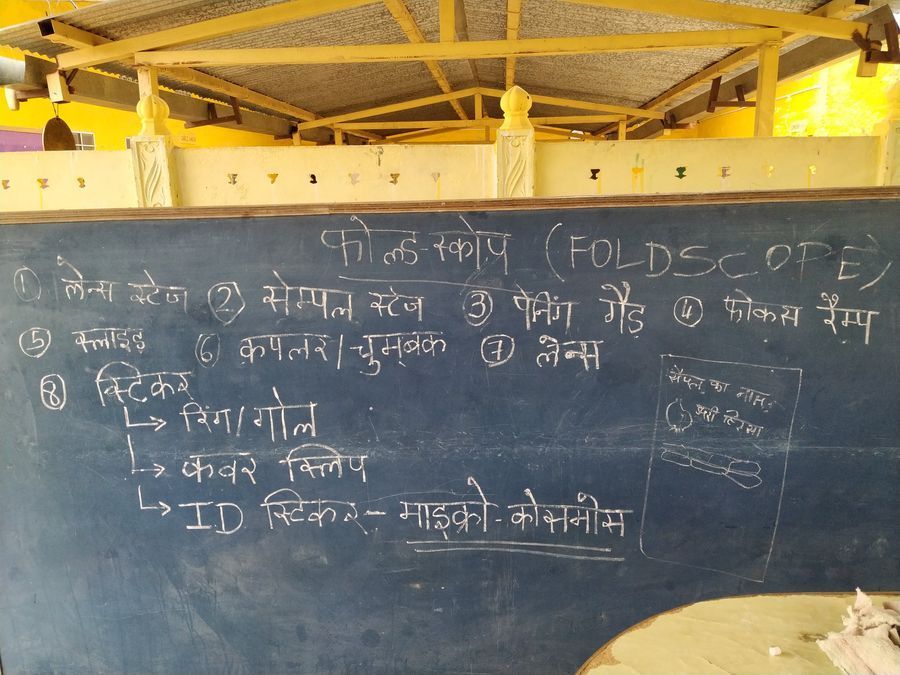 फोल्ड-स्कोप (FOLDSCOPE)
① लेन्स स्टेज ② सेम्पल स्टेज ③ पेनिंग गैड ④ फोकस रैम्प
⑤ स्लाइड ⑥ कपलर/चुम्बक ⑦ लेन्स
⑧ स्टिकर
↳ रिंग/गोल
↳ कवर स्लिप
↳ ID स्टिकर - माइक्रो-कोसमोस
सैंपल का नाम: